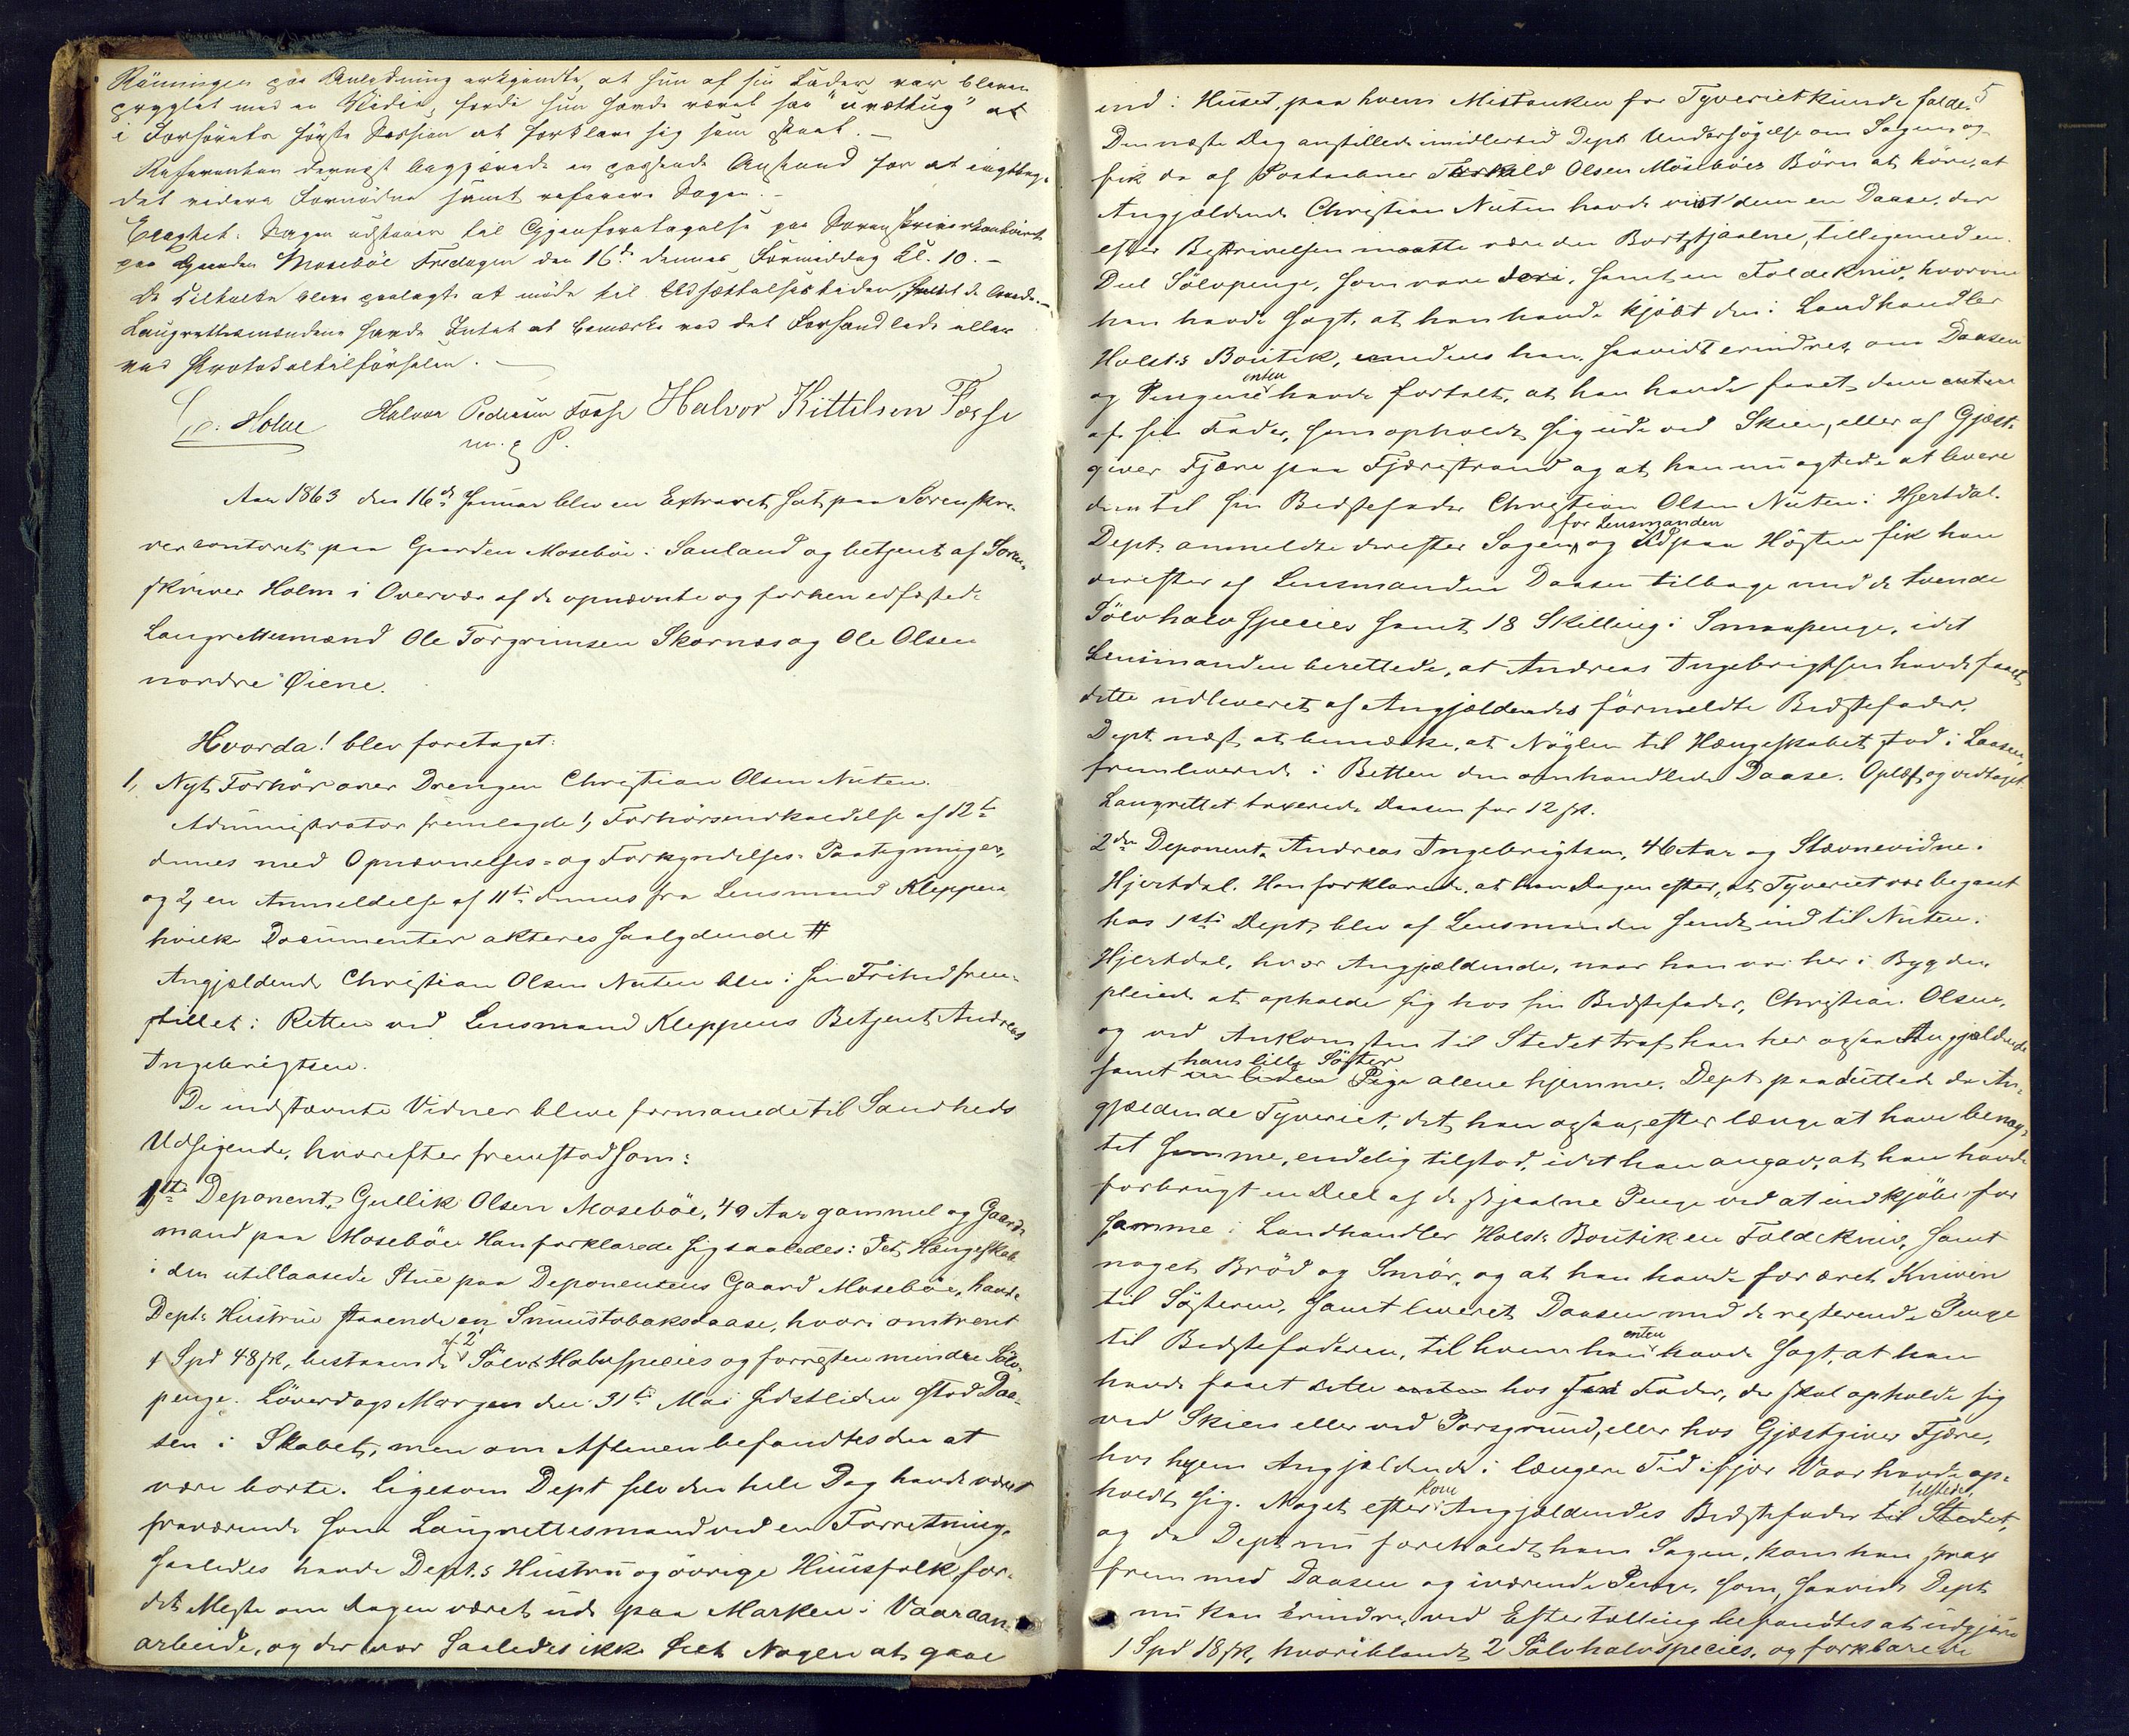 Rönningen paa Anledning erkjendte, at hun af sin Fader var bleven
pryglet med en Vidie, fordi hun havde været saa "urettug" at
i Forhörets förste Session at forklare sig som skeet.
Referenten dernæst begjærede en passende Anstand for at iagttage
det videre Fornödne samt referere Sagen.
Eragtet: Sagen udstaaer til Gjenforetagelse paa Sorenskriverkontoiret
paa Gaarden Moseböe Fredagen den 16de dennes Formiddag Kl. 10.
De Tiltalte bleve paalagte at möde til Udsættelsestiden,
Laugrettesmændene havde Intet at bemærke ved det Forhandlede eller
ved Protokoltilförselen.
Holm Halvor Pedersen Fosse Halvor Kittilsen Fosse
m. P.
Aar 1863 den 16de Januar blev en Extraret sat paa Sorenskri-
vercontoret paa Gaarden Moseböe i Sauland og betjent af Soren-
skriver Holm i Overvær af de opnævnte og forhen edfæstede
Laugrettesmænd Ole Torgrimsen Skarnes og Ole Olsen
nordre Öiene.
Hvorda! blev foretaget:
1, Nyt Forhör over Drengen Christian Olsen Nuten.
Administrator fremlagde 1, Forhörsindkaldelse af 12te
dennes med Opnævnelses- og Forkyndelses-Paategninger,
og 2, en Anmeldelse af 11te dennes fra Lensmand Kleppen
hvilke Documenter akteres saalydende #
Angjældende Christian Olsen Nuten blev i sin Frihed frem-
stillet i Retten ved Lensmand Kleppens Betjent Andreas
Ingebrigtsen.
De indstævnte Vidner bleve formanede til Sandheds
Udsigende, hvorefter fremstod som:
1ste Deponent, Gullik Olsen Moseböe, 49 Aar gammel og Gaard-
mand paa Moseböe. Han forklarede sig saaledes: I et Hængeskab
i den utillaasede Stue paa Deponentens Gaard Moseböe, havde
Depts Hustru staaende en Snuustobaksdaase, hvori omtrent
1 Spd 48 sk, bestaaende af 2 Sölv Halvspecies og forresten mindre Sölv-
penge. Löverdags Morgen den 31te Mai sidstleden stod Daa-
sen i Skabet, men om Aftenen befandtes den at
være borte. Ligesom Dept selv den hele Dag havde været
fraværende som Laugrettesmand ved en Forretning,
saaledes havde Dept.s Hustru og övrige Huusfolk for-
det Meste om Dagen været ude paa Marken i Vaaraan-
arbeide, og der var saaledes ikke seet Nogen at gaae
5
ind i Huset, paa hvem Mistanken for Tyveriet kunde falde.
Den næste Dag anstillede imidlertid Dept Undersögelse om Sagen, og
fik da af Postaabner Torkild Olsen Möseböes Börn at höre, at
Angjældende Christian Nuten havde viist dem en Daase, der
efter Beskrivelsen maatte være den Bortstjaalne, tilligemed en
Deel Sölvpenge, som vare deri, samt en Foldekniv, hvorom
han havde sagt, at han havde kjöbt den i Landhandler
Holst.s Boutik, medens han, saavidt erindres, om Daasen
og Pengene enten havde fortalt, at han havde faaet dem enten
af sin Fader, som opholdt sig ude ved Skien, eller af Gjæst-
giver Fjære paa Fjærestrand og at han nu agtede at levere
dem til sin Bedstefader Christian Olsen Nuten i Hjertdal.
Dept. anmeldte derefter Sagen for Lensmanden og Udpaa Hösten fik han
derefter af Lensmanden Daasen tilbage med de tvende
Sölvhalvspecies samt 18 Skilling i Smaapenge, idet
Lensmanden berettede, at Andreas Ingebrigtsen havde faaet
dette udleveret af Angjældendes förmeldte Bedstefader.
Dept næst at bemærke, at Nöglen til Hængeskabet stod i Laasen,
fremleverede i Retten den omhandlede Daase. Oplæst og vedtaget.
Laugrettet taxerede Daasen for 12 sk.
2den Deponent, Andreas Ingebrigtsen, 46 Aar og Stævnevidne i
Hjertdal. Han forklarede, at han Dagen efter, at Tyveriet var begaaet
hos 1ste Dept, blev af Lensmanden sendt ind til Nuten i
Hjertdal, hvor Angjældende, naar han var her i Bygden
pleiede at opholde sig hos sin Bedstefader, Christian Olsen,
og ved Ankomsten til Stedet traf han her ogsaa Angjældende
samt hans lille Söster en liden Pige alene hjemme. Dept. paaduttede da An-
gjældende Tyveriet, det han ogsaa, efter længe at have benæg-
tet samme, endelig tilstod, idet han angav, at han havde
forbrugt en Deel af de stjaalne Penge ved at indkjöbe for
samme i Landhandler Holsts Boutik en Foldekniv, samt
noget Bröd og Smör, og at han havde foræret Kniven
til Sösteren, samt leveret Daasen med de resterende Penge
til Bedstefaderen, til hvem han enten havde sagt, at han
havde faaet dette enten hos sin Fader, der skal opholde sig
ved Skien eller ved Porsgrund, eller hos Gjæstgiver Fjære,
hos hvem Angjældende i længere Tid ifjor Vaar havde op-
holdt sig. Noget efter kom Angjældendes Bedstefader til Stedet, tilstede,
og da Dept nu foreholdt ham Sagen, kom han strax
frem med Daasen og iværende Penge, som, saavidt Dept
nu kan erindre, ved Eftertælling befandtes at udgjöre
1 Spd 18 sk, hvoriblandt 2 Sölvhalvspecies, og forklarede